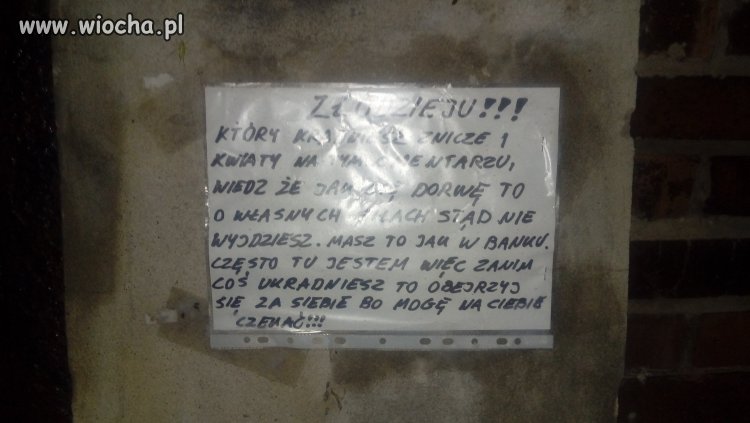 www.wiocha.pl
ZŁODZIEJU!!!
KTÓRY KRADNIESZ ZNICZE I
KWIATY NA TYM CMENTARZU,
WIEDZ ŻE JAK CIĘ DORWĘ TO
O WŁASNYCH SIŁACH STĄD NIE
WYJDZIESZ. MASZ TO JAK W BANKU.
CZĘSTO TU JESTEM WIĘC ZANIM
COŚ UKRADNIESZ TO OBEJRZYJ
SIĘ ZA SIEBIE BO MOGĘ NA CIEBIE
CZEKAĆ!!!